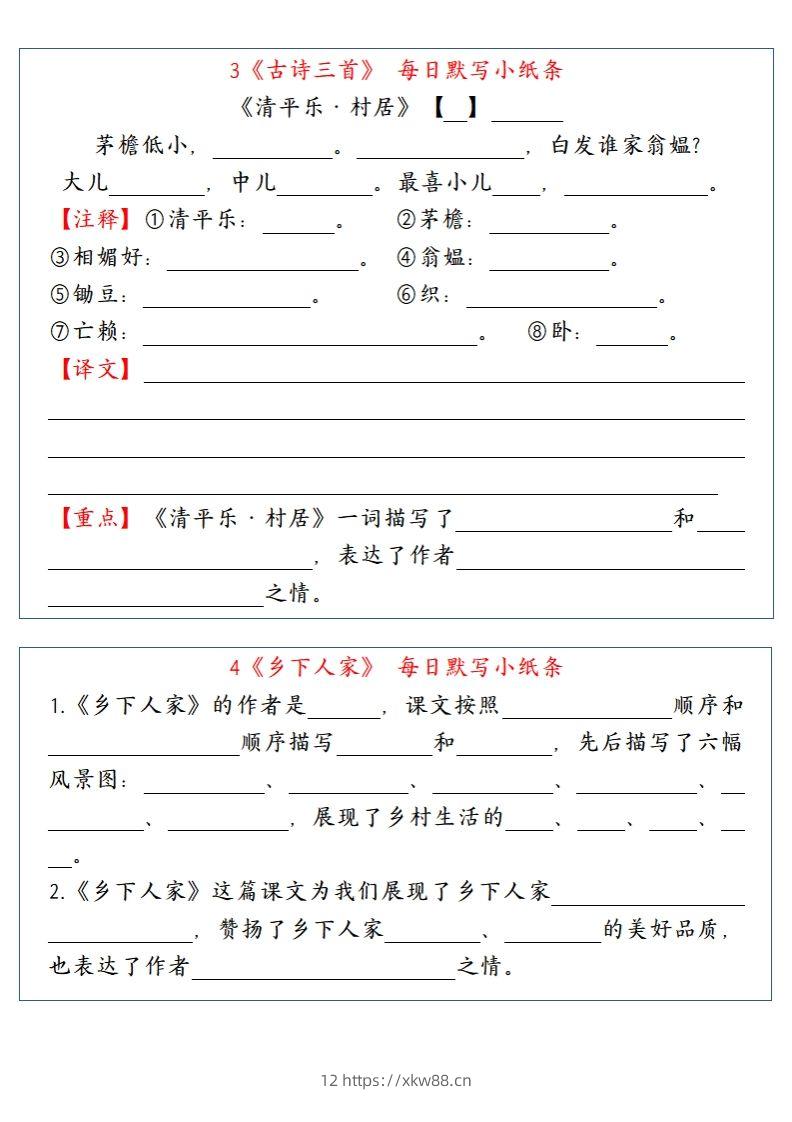 3《古诗三首》 每日默写小纸条
《清平乐·村居》【__】______
茅檐低小，__________。______________，白发谁家翁媪?
大儿________，中儿________。最喜小儿____，____________。
【注释】①清平乐：______。 ②茅檐：__________。
③相媚好：________________。 ④翁媪：__________。
⑤锄豆：______________。 ⑥织：________________。
⑦亡赖：____________________________。 ⑧卧：______。
【译文】__________________________________________________
__________________________________________________________
__________________________________________________________
________________________________________________________
【重点】《清平乐·村居》一词描写了__________________和____
______________________，表达了作者________________________
__________________之情。
4《乡下人家》 每日默写小纸条
1.《乡下人家》的作者是______，课文按照______________顺序和
________________顺序描写________和________，先后描写了六幅
风景图：__________、__________、__________、__________、__
________、__________，展现了乡村生活的____、____、____、__
__。
2.《乡下人家》这篇课文为我们展现了乡下人家________________
____________，赞扬了乡下人家________、________的美好品质，
也表达了作者______________________之情。
12 https://xkw88.cn